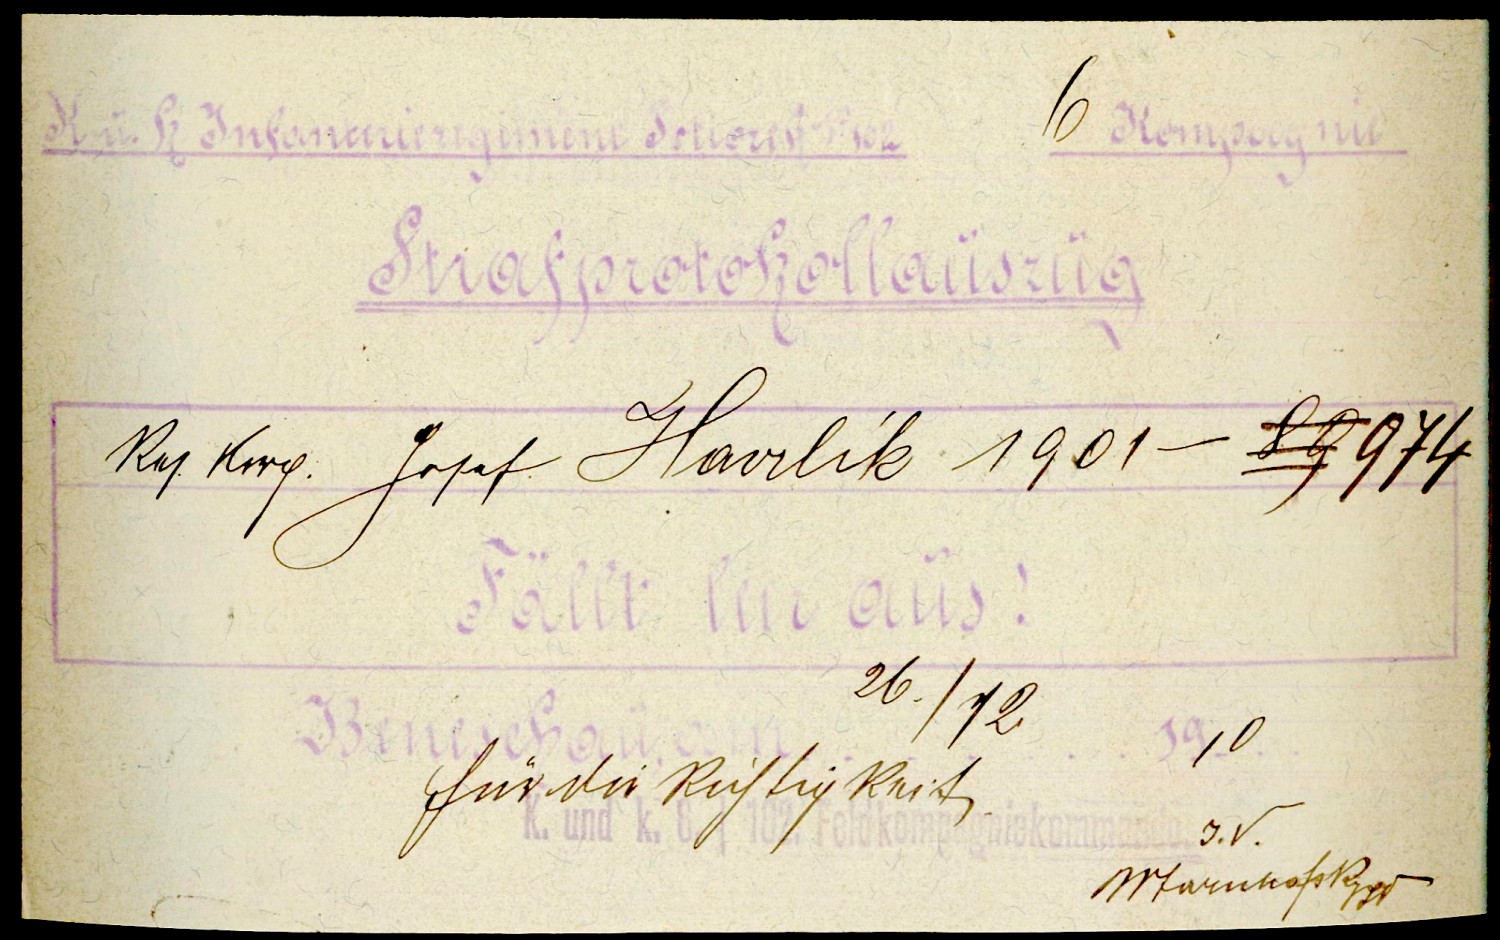 K. u. k. Infanterieregiment Potiorek Nº 102 6 Kompagnie
Strafprotokollauszug
Res. Korp. Josef Havlík 1901 – 974
Fällt leer aus!
Beneschau, am 26./12 1910
für die Richtigkeit
K. und k. 6. | 102. Feldkompagniekommando.